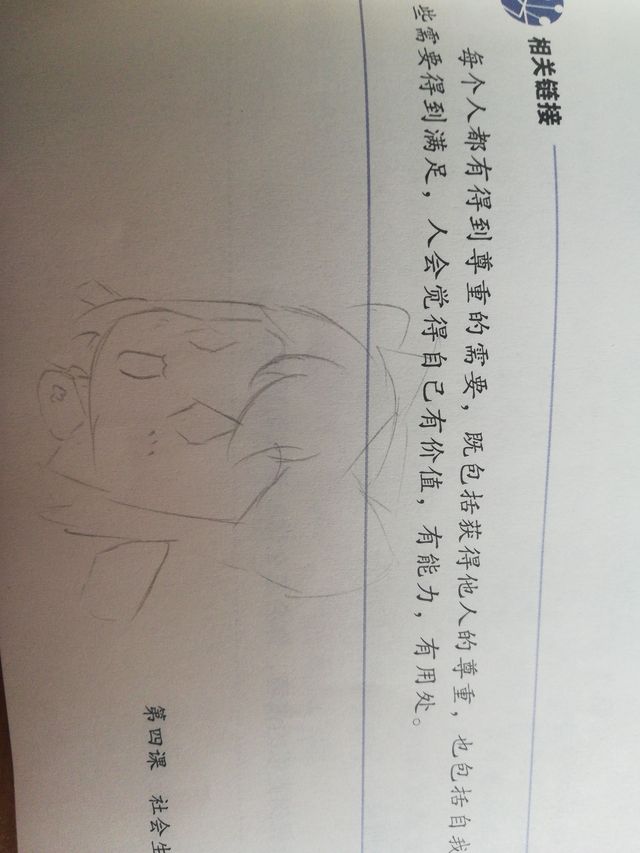 相关链接
每个人都有得到尊重的需要，既包括获得他人的尊重，也包括自我
些需要得到满足，人会觉得自己有价值，有能力，有用处。
第四课 社会生